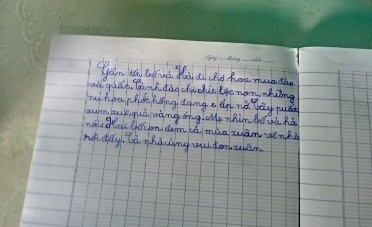 Ngày ... tháng ... năm ...
Gần tết, bố và Hải đi chợ hoa mua đào
và quất. Cành đào chi chít lộc non, những
nụ hoa phớt hồng đang e ấp nở. Cây quất
xum xuê quả vàng óng. Mẹ nhìn bố và hà
nói: Hai bố con đem cả mùa xuân về nhà
rồi đấy. Cả nhà cùng vui đón xuân.